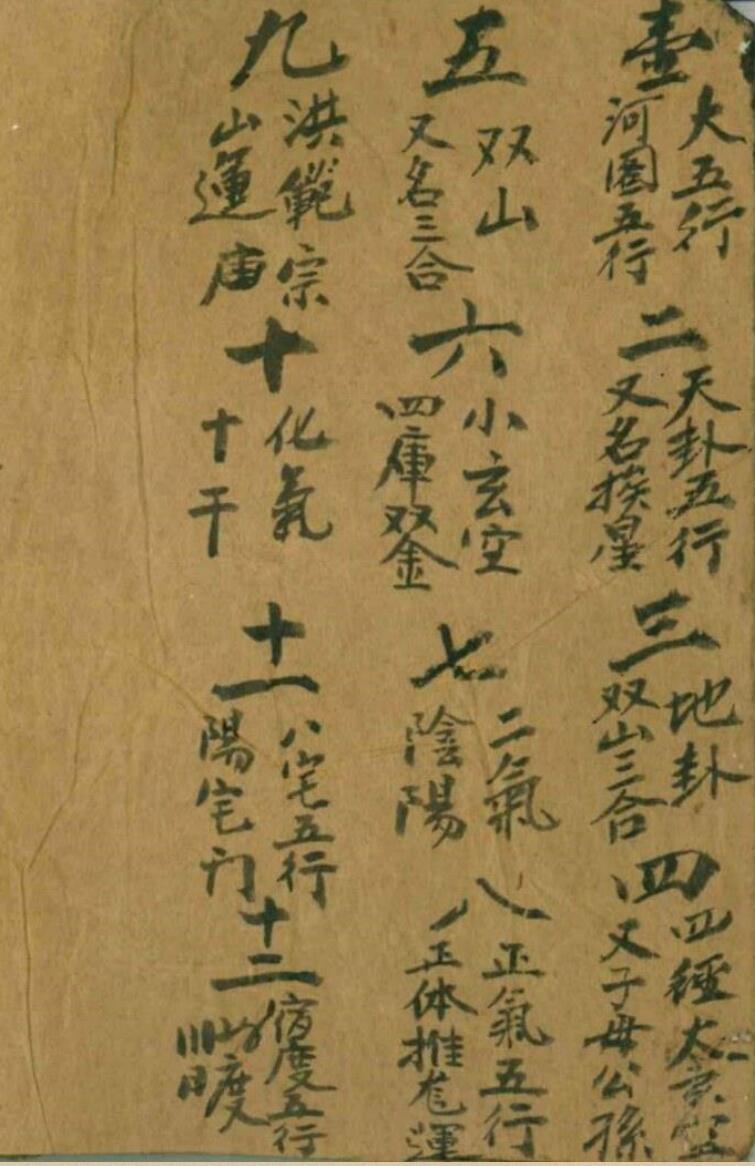 壹
大五行
河圖五行
二
天卦五行
又名挨星
三
地卦
双山三合
四
四經大玄空
又子母公孫
五
双山
又名三合
六
小玄空
四庫双金
七
二氣
陰陽
八
正氣五行
正体推運
九
洪範宗
山運庙
十
化氣
十干
十一
八宅五行
陽宅门
十二
宿度五行
度